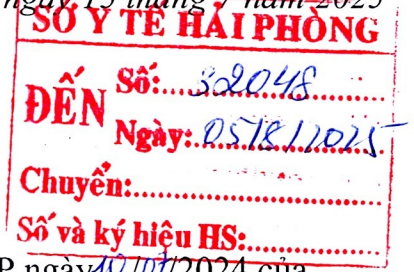 ngày 15 tháng 7 năm 2025
SỞ Y TẾ HẢI PHÒNG
ĐẾN
Số: 32048
Ngày: 05/8/2025
Chuyển:
Số và ký hiệu HS:
P ngày 10/07/2024 của